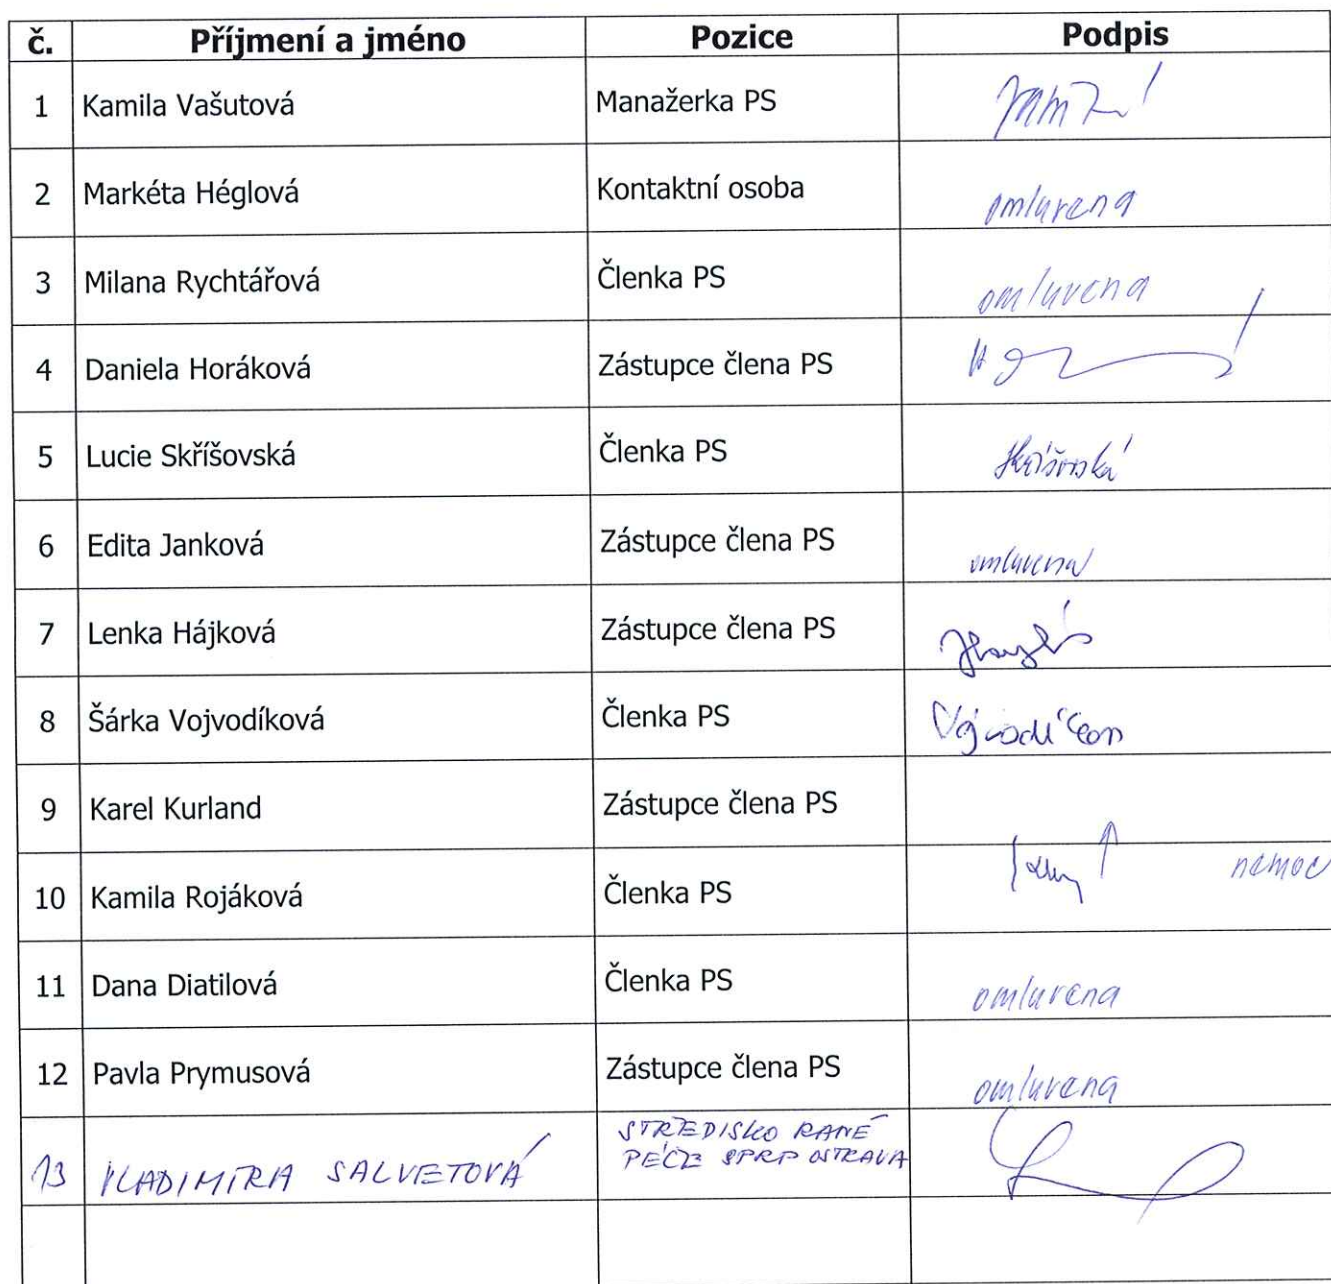 č. Příjmení a jméno Pozice Podpis
1 Kamila Vašutová Manažerka PS
2 Markéta Héglová Kontaktní osoba omluvena
3 Milana Rychtářová Členka PS omluvena
4 Daniela Horáková Zástupce člena PS
5 Lucie Skříšovská Členka PS Skříšovská
6 Edita Janková Zástupce člena PS omluvena
7 Lenka Hájková Zástupce člena PS
8 Šárka Vojvodíková Členka PS
9 Karel Kurland Zástupce člena PS
10 Kamila Rojáková Členka PS nemoc
11 Dana Diatilová Členka PS omluvena
12 Pavla Prymusová Zástupce člena PS omluvena
13 VLADIMÍRA SALVETOVÁ STŘEDISKO RANÉ
PÉČE SPRP OSTRAVA